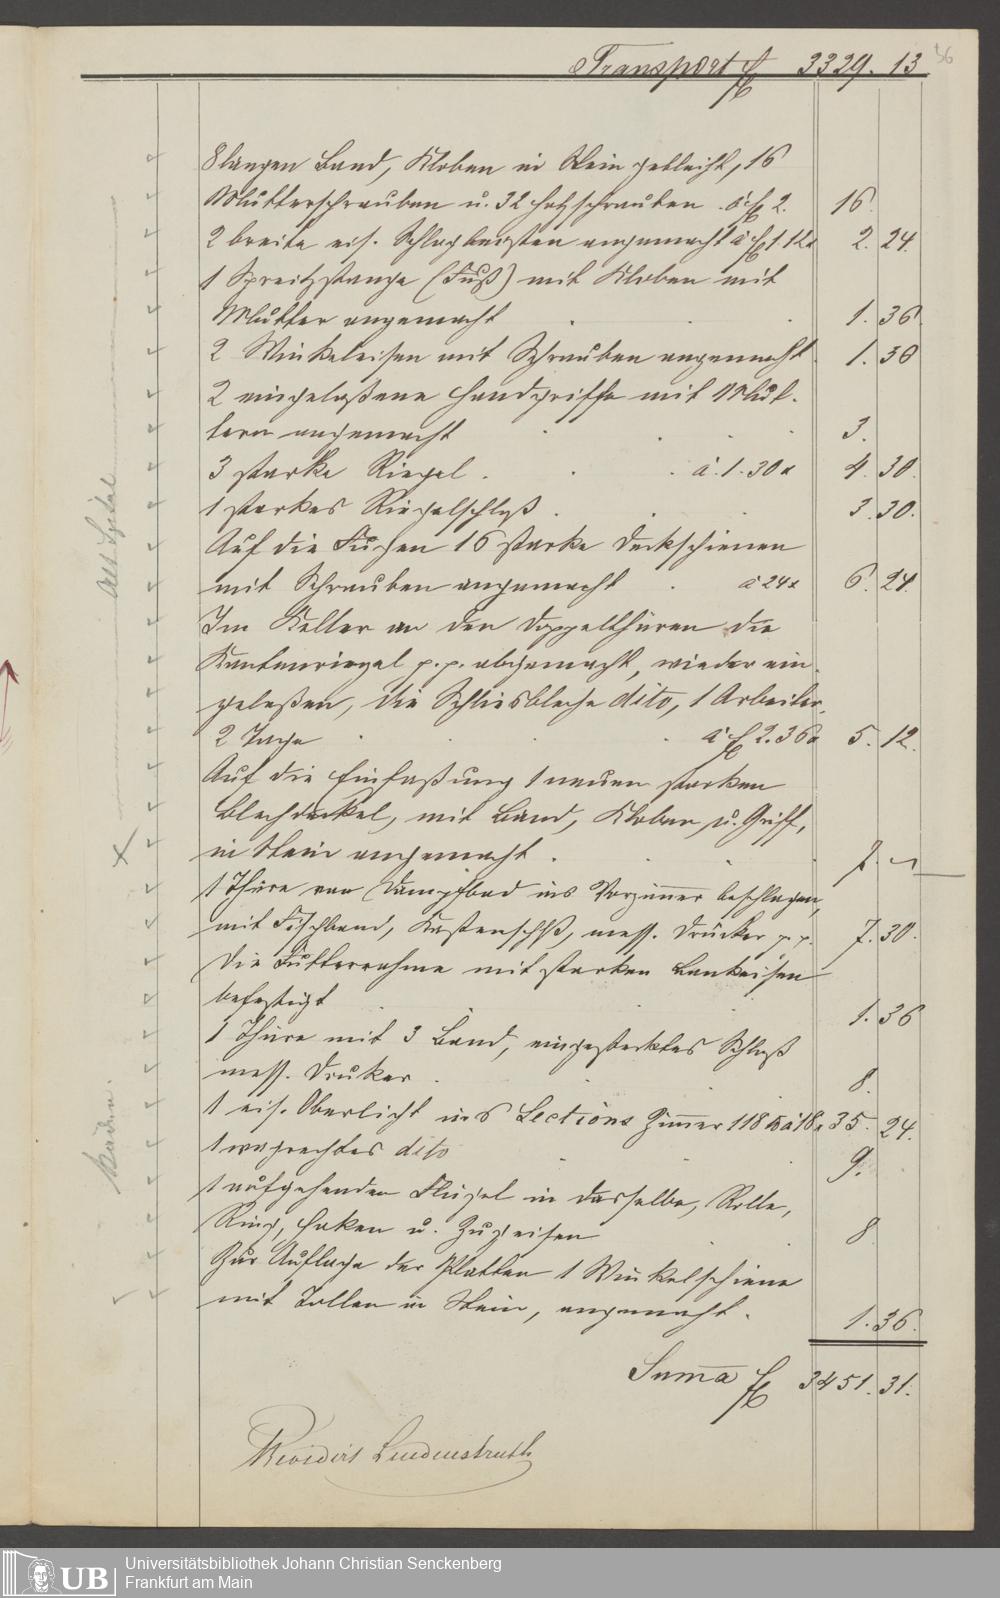 Transport f 3329. 13
36
8 langen Band, Kloben in Stein gebleiht, 16
Mutterschrauben u. 32 Holzschrauben . à f 2. 16.
2 breite eis. Schlagleisten angemacht à f 1.12x 2. 24.
1 Spreitzstange (Fuß) mit Kloben mit
Mutter angemacht 1. 36.
2 Winkeleisen mit Schrauben angemacht 1. 36
2 eingelaßene Handgriffe mit Mut-
tern angemacht 3.
3 starke Riegel . à 1.30x 4. 30.
1 starkes Riegelschloß . 3. 30.
Auf die Fugen 16 starke Deckschienen
mit Schrauben angemacht . à 24x 6. 24.
Im Keller an den Doppelthüren die
Kantenriegel p.p. abgemacht, wieder ein-
gelaßen, die Schliesbleche dito, 1 Arbeiter,
2 Tage à f 2.36x 5. 12.
Auf die Einfaßung 1 neuen starken
Blechdeckel, mit Band, Kloben u. Griff,
in Stein angemacht . 7. –
1 Thüre von Dampfbad ins Vorzimmer beschlagen,
mit Fischband, Kastenschloß, mess. Drücker p.p. 7. 30.
Die Futterrahme mit starken Bankeisen
befestigt 1. 36
1 Thüre mit 3 Band, eingestecktes Schloß
mess. Druker . 8.
1 eis. Oberlicht ins Lections Zimmer 118 ℔ à 18x 35. 24.
1 dito 9.
1 aufgehenden Flügel in dasselbe, Rolle,
Ring, Haken u. Zugeisen 8
Zur Auflage der Platten 1 Winkelschiene
mit Tollen in Stein, angemacht . 1. 36.
Suma f 3451. 31.
Revidirt Lindenstruth
Alt Spital
Baden.
UB
Universitätsbibliothek Johann Christian Senckenberg
Frankfurt am Main